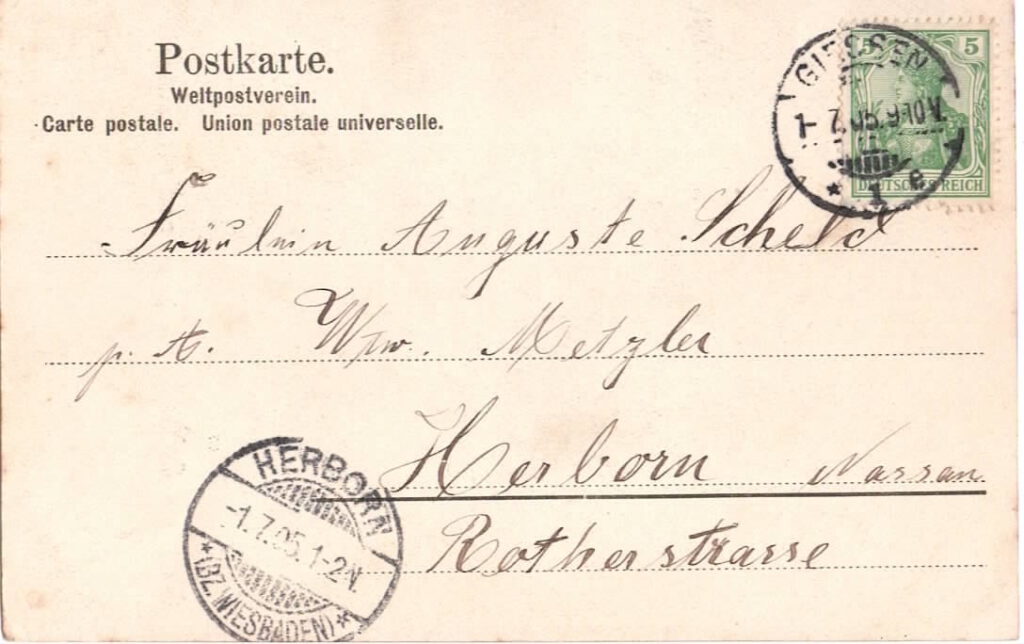 Postkarte.
Weltpostverein.
Carte postale. Union postale universelle.
GIESSEN
1-7.05.9-10V.
* 1 e
5 5
DEUTSCHES REICH
Fräulein Auguste Scheld
p. A. Wtw. Metzler
Herborn Nassau
Rotherstrasse
HERBORN
-1.7.05.1-2N.
*(BZ. WIESBADEN)*